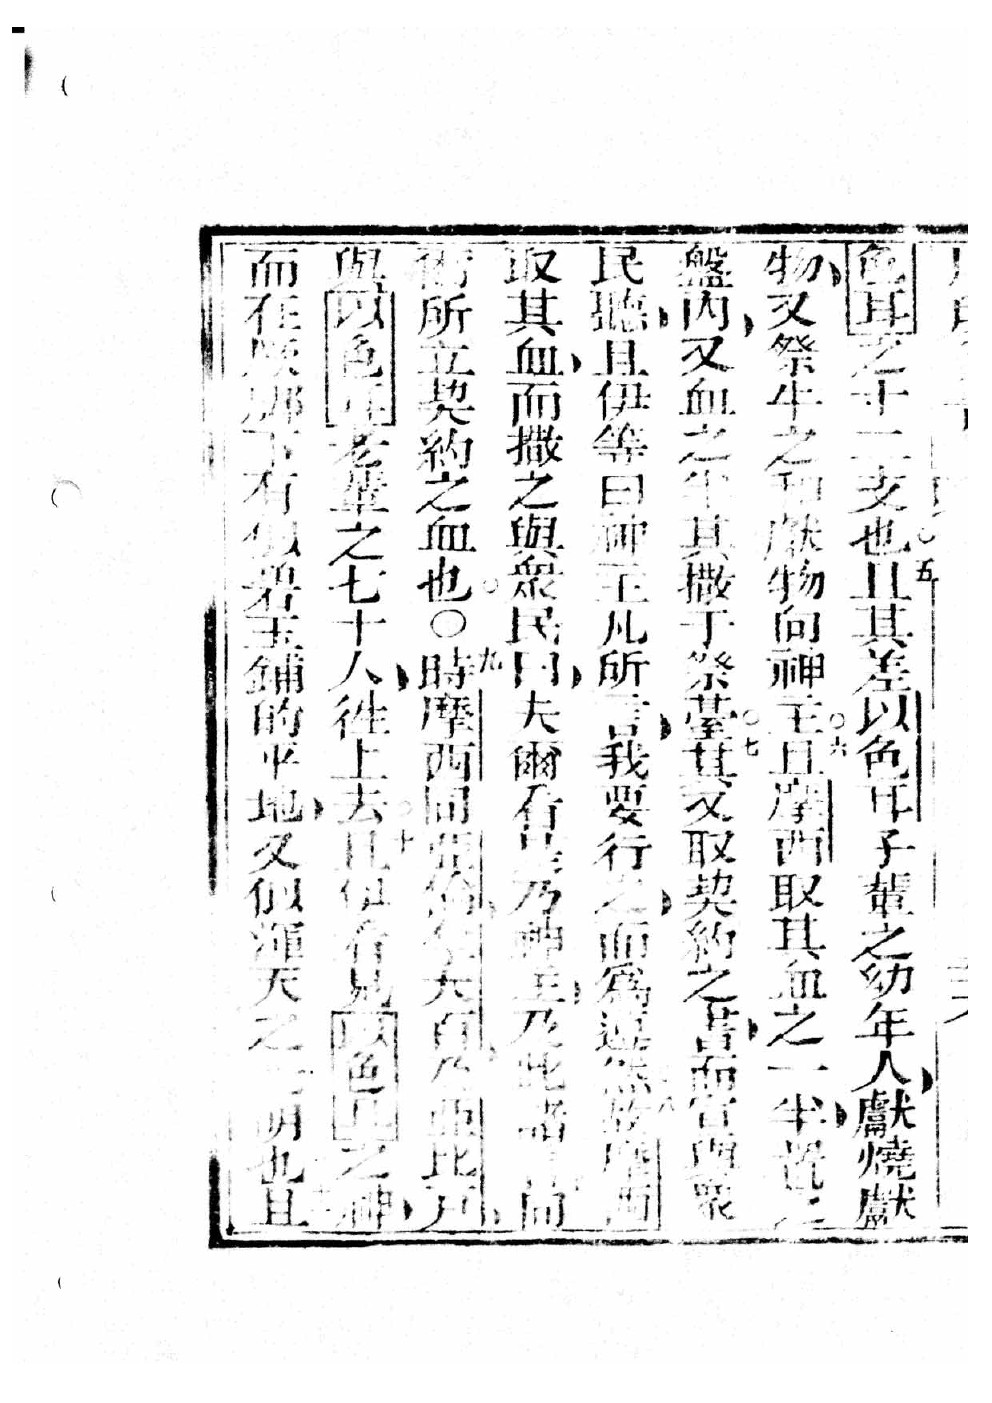 色耳之十二支也且其差以色耳子輩之幼年人獻燒獻
物又祭牛之和獻物向神主且摩西取其血之一半置之
盤內又血之半其撒于祭臺其又取契約之書而宣與眾
民聽且伊等曰神主凡所言我要行之而為遵然故摩西
取其血而撒之與眾民曰夫爾看是乃神主及此諸 向
爾所立契約之血也〇時摩西同亞倫拿大百乃亞比戶
與以色耳老輩之七十人徃上去且伊看見以色耳之神
而在 下有似碧玉鋪的平地又似渾天之 明也且
五
六
七
八
九
十